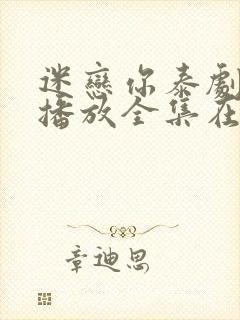 迷戀你泰劇
播放全集在
章迪思